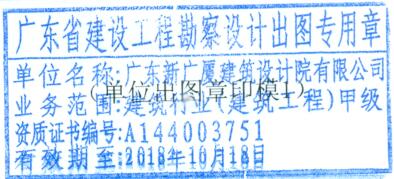 广东省建设工程勘察设计出图专用章
单位名称:广东新广厦建筑设计院有限公司
(单位出图章印模1)
业务范围:建筑行业(建筑工程)甲级
资质证书编号:A144003751
有效期至:2018年10月18日